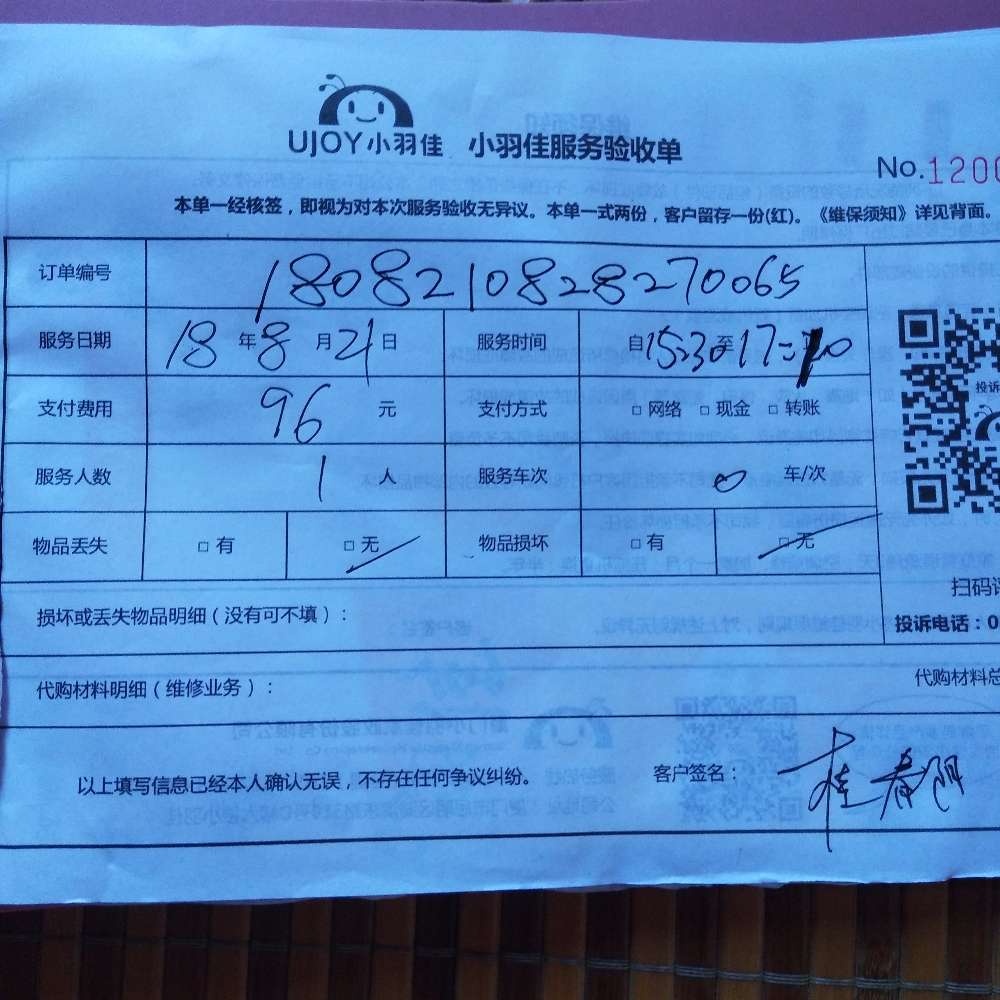 UJOY小羽佳 小羽佳服务验收单
No.1200
本单一经核签，即视为对本次服务验收无异议。本单一式两份，客户留存一份(红)。《维保须知》详见背面。
订单编号 1808210828270065
服务日期 18 年 8 月 21 日 服务时间 自 15:30 至 17:
支付费用 96 元 支付方式 □ 网络 □ 现金 □ 转账
服务人数 1 人 服务车次 0 车/次
投诉
物品丢失 □ 有 □ 无 物品损坏 □ 有 □ 无
扫码
损坏或丢失物品明细（没有可不填）：
投诉电话：0
代购材料明细（维修业务）：
代购材料总
以上填写信息已经本人确认无误，不存在任何争议纠纷。 客户签名： 桂春阴